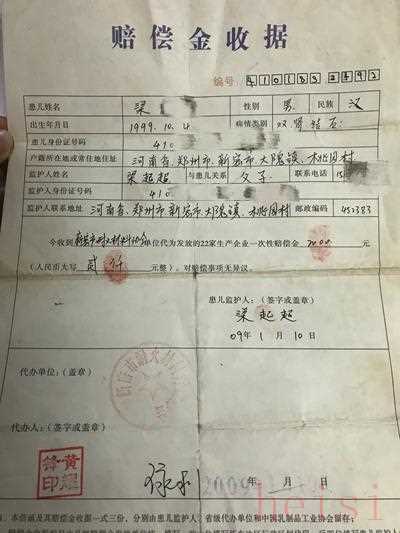 赔偿金收据
编号 410183 2492
患儿姓名 梁 性别 男 民族 汉
出生年月日 1999.10.4 病情类别 双肾结石
患儿身份证号码 410
户籍所在地或常住地住址 河南省.郑州市.新密市.大隗镇.桃园村
监护人姓名 梁起超 与患儿关系 父子 联系电话 15
监护人身份证号码 410
监护人联系地址 河南省.郑州市.新密市.大隗镇.桃园村 邮政编码 452383
今收到 单位代为发放的22家生产企业一次性赔偿金 2000 元
(人民币大写 贰仟 元整)。对赔偿事项无异议。
患儿监护人:(签字或盖章)
梁起超
09年1月10日
代办单位:(盖章)
代办人:(签字或盖章)
年 月 日
2009
黄耀锋印
1、本偿函及其赔偿金收据一式三份,分别由患儿监护人、省级代办单位和中国乳制品工业协会留存;